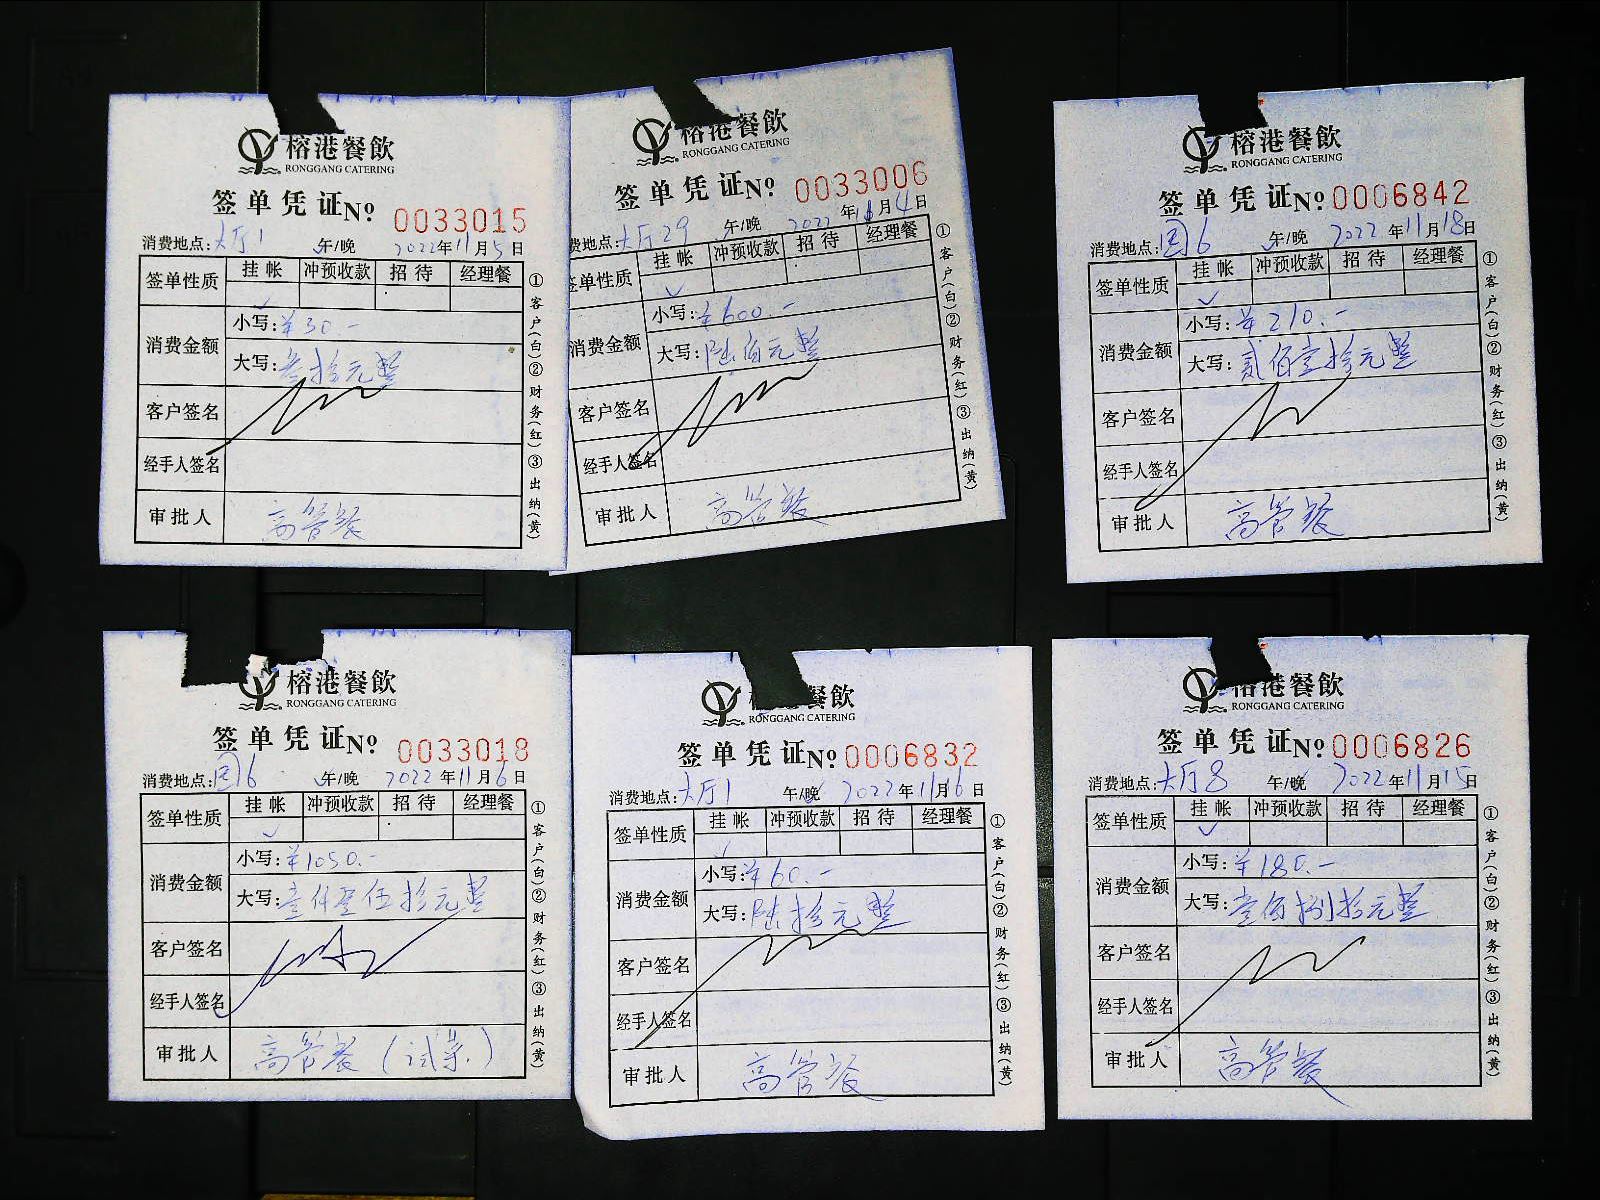 榕港餐飲
RONGGANG CATERING
签单凭证 No 0033015
消费地点:大厅1 午/晚 2022年11月5日
签单性质 挂帐 冲预收款 招待 经理餐
消费金额 小写:¥30.-
大写:叁拾元整
客户签名
经手人签名
审批人 高管餐
①客户(白)②财务(红)③出纳(黄)
榕港餐飲
RONGGANG CATERING
签单凭证 No 0033006
消费地点:大厅29 午/晚 2022年11月4日
签单性质 挂帐 冲预收款 招待 经理餐
消费金额 小写:¥600.-
大写:陆佰元整
客户签名
经手人签名
审批人 高管餐
①客户(白)②财务(红)③出纳(黄)
榕港餐飲
RONGGANG CATERING
签单凭证 No 0006842
消费地点:园6 午/晚 2022年11月18日
签单性质 挂帐 冲预收款 招待 经理餐
消费金额 小写:¥210.-
大写:贰佰壹拾元整
客户签名
经手人签名
审批人 高管餐
①客户(白)②财务(红)③出纳(黄)
榕港餐飲
RONGGANG CATERING
签单凭证 No 0033018
消费地点:园6 午/晚 2022年11月6日
签单性质 挂帐 冲预收款 招待 经理餐
消费金额 小写:¥1050.-
大写:壹仟零伍拾元整
客户签名
经手人签名
审批人 高管餐(试菜.)
①客户(白)②财务(红)③出纳(黄)
餐飲
RONGGANG CATERING
签单凭证 No 0006832
消费地点:大厅1 午/晚 2022年11月16日
签单性质 挂帐 冲预收款 招待 经理餐
消费金额 小写:¥60.-
大写:陆拾元整
客户签名
经手人签名
审批人 高管餐
①客户(白)②财务(红)③出纳(黄)
榕港餐飲
RONGGANG CATERING
签单凭证 No 0006826
消费地点:大厅8 午/晚 2022年11月15日
签单性质 挂帐 冲预收款 招待 经理餐
消费金额 小写:¥180.-
大写:壹佰捌拾元整
客户签名
经手人签名
审批人 高管餐
①客户(白)②财务(红)③出纳(黄)